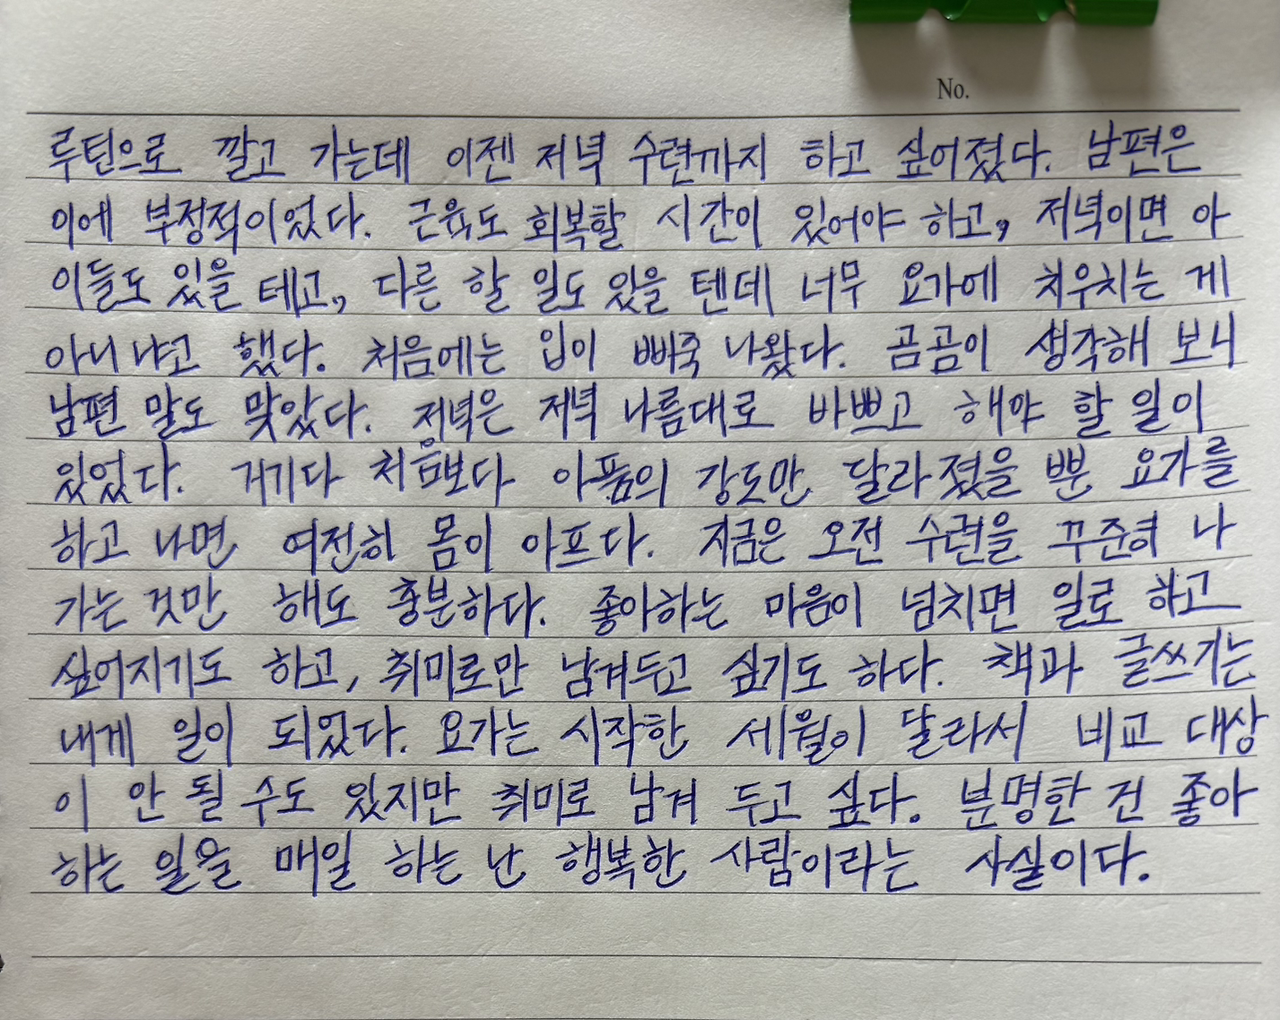 No.
루틴으로 깔고 가는데 이젠 저녁 수련까지 하고 싶어졌다. 남편은
이에 부정적이었다. 근육도 회복할 시간이 있어야 하고, 저녁이면 아
이들도 있을 테고, 다른 할 일도 있을 텐데 너무 요가에 치우치는 게
아니냐고 했다. 처음에는 입이 삐죽 나왔다. 곰곰이 생각해 보니
남편 말도 맞았다. 저녁은 저녁 나름대로 바쁘고 해야 할 일이
있었다. 거기다 처음보다 아픔의 강도만 달라졌을 뿐 요가를
하고 나면 여전히 몸이 아프다. 지금은 오전 수련을 꾸준히 나
가는 것만 해도 충분하다. 좋아하는 마음이 넘치면 일로 하고
싶어지기도 하고, 취미로만 남겨두고 싶기도 하다. 책과 글쓰기는
내게 일이 되었다. 요가는 시작한 세월이 달라서 비교 대상
이 안 될 수도 있지만 취미로 남겨 두고 싶다. 분명한 건 좋아
하는 일을 매일 하는 난 행복한 사람이라는 사실이다.